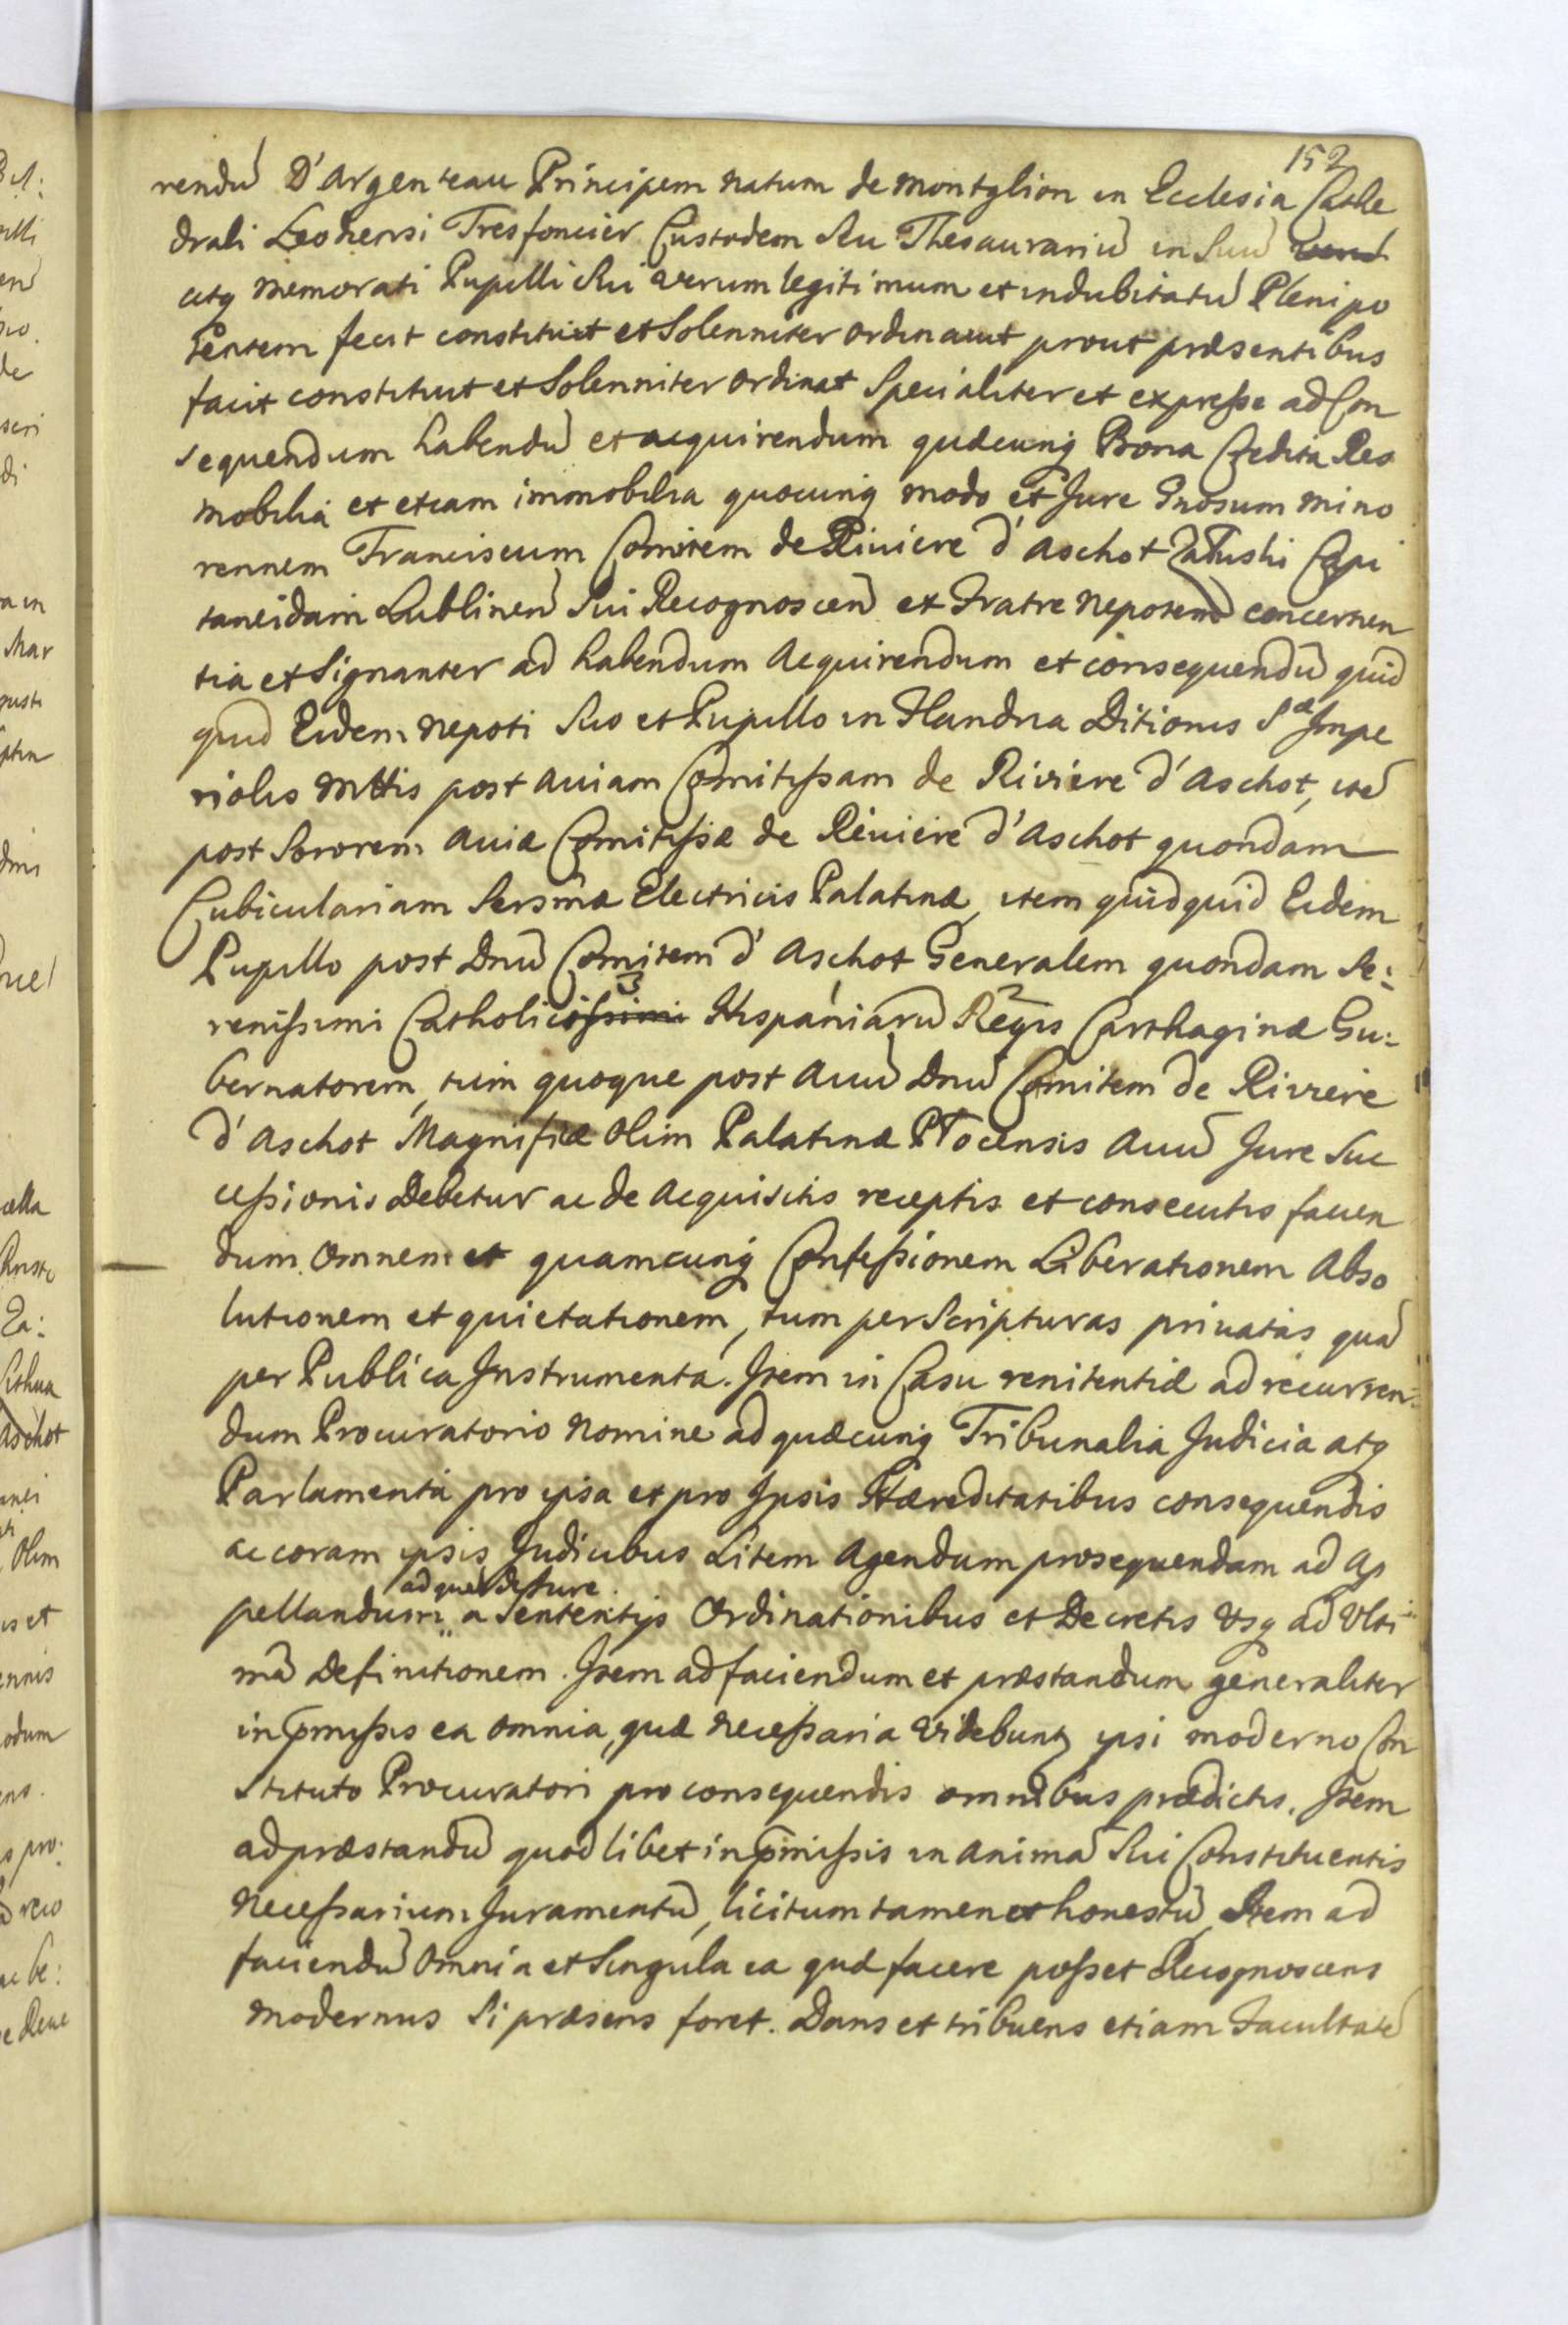 152
rendũ D'Argenteau Principem natum de Montglion in Ecclesia Cathe
drali Leodiensi Tresfoncier Custodem seu Thesaurariũ in Suũ
atq memorati Pupilli sui verum legitimum et indubitatũ Plenipo
tentem fecit constituit et Solenniter ordinauit prout præsentibus
facit constituit et Solenniter ordinat Specialiter et expresse ad Con
sequendum habendũ et acquirendum quæcunq Bona Credita Res
mobilia et etiam immobilia quocunq modo et Jure Gnosum mino
rennem Franciscum Comitem de Riviere d'Aschot Załuski Capi
taneidam Lublinen̄ Sui Recognoscen̄ ex Fratre Nepotem concernen
tia et Signanter ad habendum Acquirendum et consequendũ quid
quid Eidem Nepoti Suo et Pupillo in Flandria Ditionis Sæ Impe
rialis Mttis post Auiam Comitissam de Riviere d'Aschot, itẽ
post Sororem Auiæ Comitissæ de Riviere d'Aschot quondam
Cubiculariam Sersmæ Electricis Palatinæ, item quidquid Eidem
Pupillo post Dnũ Comitem d'Aschot Generalem quondam Se:
renissimi Catholicissimi Hispaniarũ Regis Carthaginæ Gu:
bernatorem, tum quoque post Auũ Dnũ Comitem de Riviere
d'Aschot Magnificæ Olim Palatinæ Płocensis Auũ Jure Suc
cessionis Debetur ac de Acquisitis receptis et consecutis facien
dum Omnem et quamcunq Confessionem Liberationem Abso
lutionem et quietationem, tum per Scripturas priuatas quã
per Publica Instrumenta. Item in Casu renitentiæ ad recurren:
dum Procuratorio Nomine ad quæcunq Tribunalia Judicia atq
Parlamenta pro ipsa et pro Ipsis Hæreditatibus consequendis
ac coram ipsis Judicibus Litem Agendum prosequendam ad Ap
ad quẽ de Jure
pellandum a Sententijs Ordinationibus et Decretis Vsq ad Vlti
mã Definitionem. Item ad faciendum et præstandum generaliter
in p̄missis ea omnia, quæ necessaria videbunt ipsi moderno Con
stituto Procuratori pro consequendis omnibus prædictis. Item
ad præstandũ quodlibet in p̄missis in animã Sui Constituentis
Necessarium Juramentũ, licitum tamen et honestũ, Item ad
faciendũ Omnia et Singula ea quæ facere posset Recognoscens
modernus Si præsens foret. Dans et tribuens etiam Facultatẽ